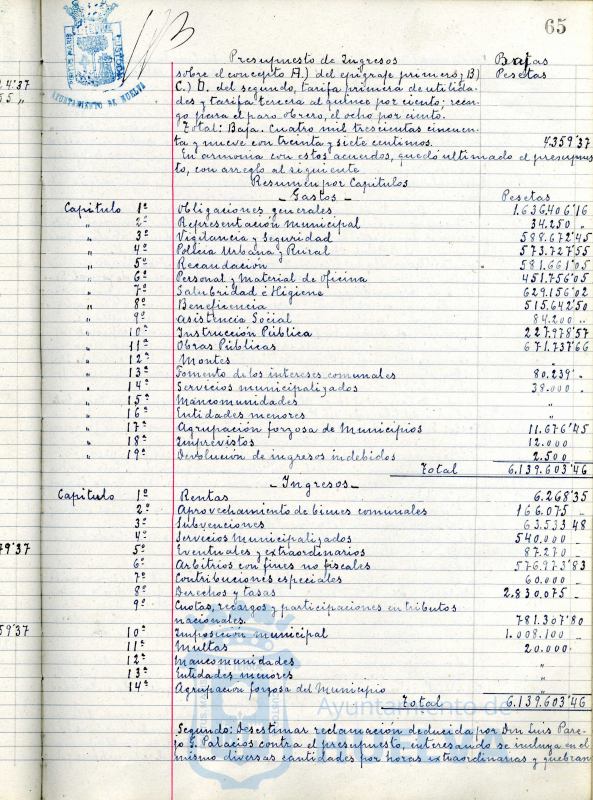 65
Presupuesto de Ingresos Bajas
sobre el concepto A.) del epígrafe primero; B) Pesetas
C.) D. del segundo, tarifa primera de utilida-
des y tarifa tercera al quince por ciento; recar-
go para el paro obrero, el ocho por ciento.
Total: Baja. Cuatro mil trescientas cincuen-
ta y nueve con treinta y siete centimos. 4.359'37
En armonia con estos acuerdos, quedó ultimado el presupues
to, con arreglo al siguiente
Resumen por Capitulos
- Gastos - Pesetas
Capitulo 1º Obligaciones generales 1.636.406'16
" 2º Representación municipal 34.250 "
" 3º Vigilancia y Seguridad 588.672'45
" 4º Policia Urbana y Rural 573.727'55
" 5º Recaudación 581.661'05
" 6º Personal y Material de Oficina 451.756'05
" 7º Salubridad e Higiene 629.156'02
" 8º Beneficencia 515.642'50
" 9º Asistencia Social 84.200 "
" 10º Instrucción Pública 227.978'57
" 11º Obras Públicas 671.737'66
" 12º Montes "
" 13º Fomento de los intereses comunales 80.239' -
" 14º Servicios municipalizados 38.000 -
" 15º Mancomunidades "
" 16º Entidades menores "
" 17º Agrupación forzosa de Municipios 11.676'45
" 18º Imprevistos 12.000
" 19º Devolución de ingresos indebidos 2.500
Total 6.139.603'46
- Ingresos -
Capitulo 1º Rentas 6.268'35
2º Aprovechamiento de bienes comunales 166.075 -
3º Subvenciones 63.533 48
4º Servicios Municipalizados 540.000 -
5º Eventuales y extraordinarios 87.270 -
6º Arbitrios con fines no fiscales 576.973'83
7º Contribuciones especiales 60.000 -
8º Derechos y tasas 2.830.075 -
9º Cuotas, recargos y participaciones en tributos
nacionales. 781.307'80
10º Imposición municipal 1.008.100
11º Multas 20.000
12º Mancomunidades "
13º Entidades menores "
14º Agrupación forzosa del Municipio "
Total 6.139.603'46
Segundo: Desestimar reclamación deducida por Don Luis Pare-
jo G. Palacios contra el presupuesto, interesando se incluya en el
mismo diversas cantidades por horas extraordinarias y quebran
AYUNTAMIENTO DE HUELVA
4'37
55 "
79'37
59'37
Ayuntamiento de